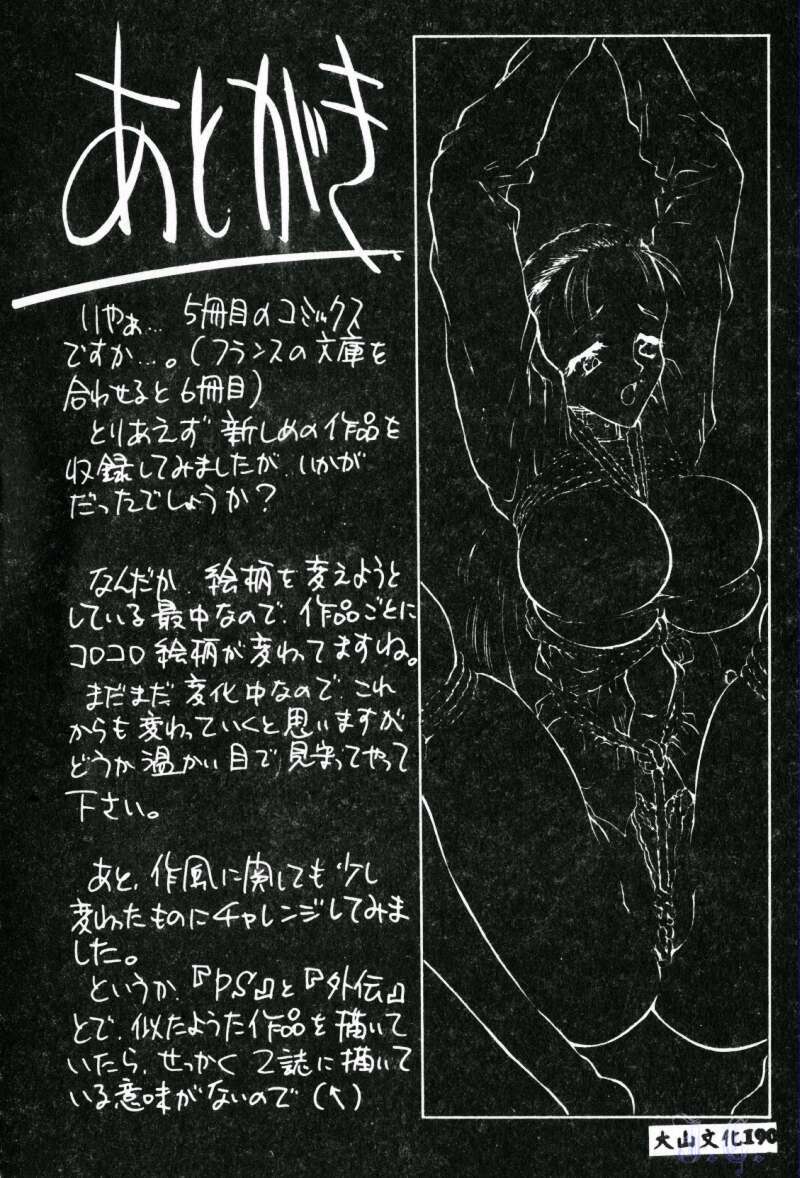 あとがき
いやぁ… 5冊目のコミックス
ですか…。(フランスの文庫を
合わせると6冊目)
とりあえず新しめの作品を
収録してみましたが、いかが
だったでしょうか?
なんだか、絵柄を変えようと
している最中なので、作品ごとに
コロコロ絵柄が変わってますね。
まだまだ変化中なので、これ
からも変わっていくと思いますが
どうか温かい目で見守ってやって
下さい。
あと、作風に関しても少し
変わったものにチャレンジしてみま
した。
というか、『PS』と『外伝』
とで、似たようた作品を描いて
いたら、せっかく2誌に描いて
いる意味がないので(↖)
大山文化190